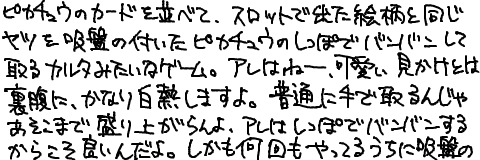 ピカチュウのカードを並べて、スロットで出た絵柄と同じ
ヤツを吸盤の付いたピカチュウのしっぽでバンバンして
取るカルタみたいなゲーム。アレはねー、可愛い見かけとは
裏腹に、かなり白熱しますよ。普通に手で取るんじゃ
あそこまで盛り上がらんよ、アレはしっぽでバンバンする
からこそ良いんだよ。しかも何回もやってるうちに吸盤の